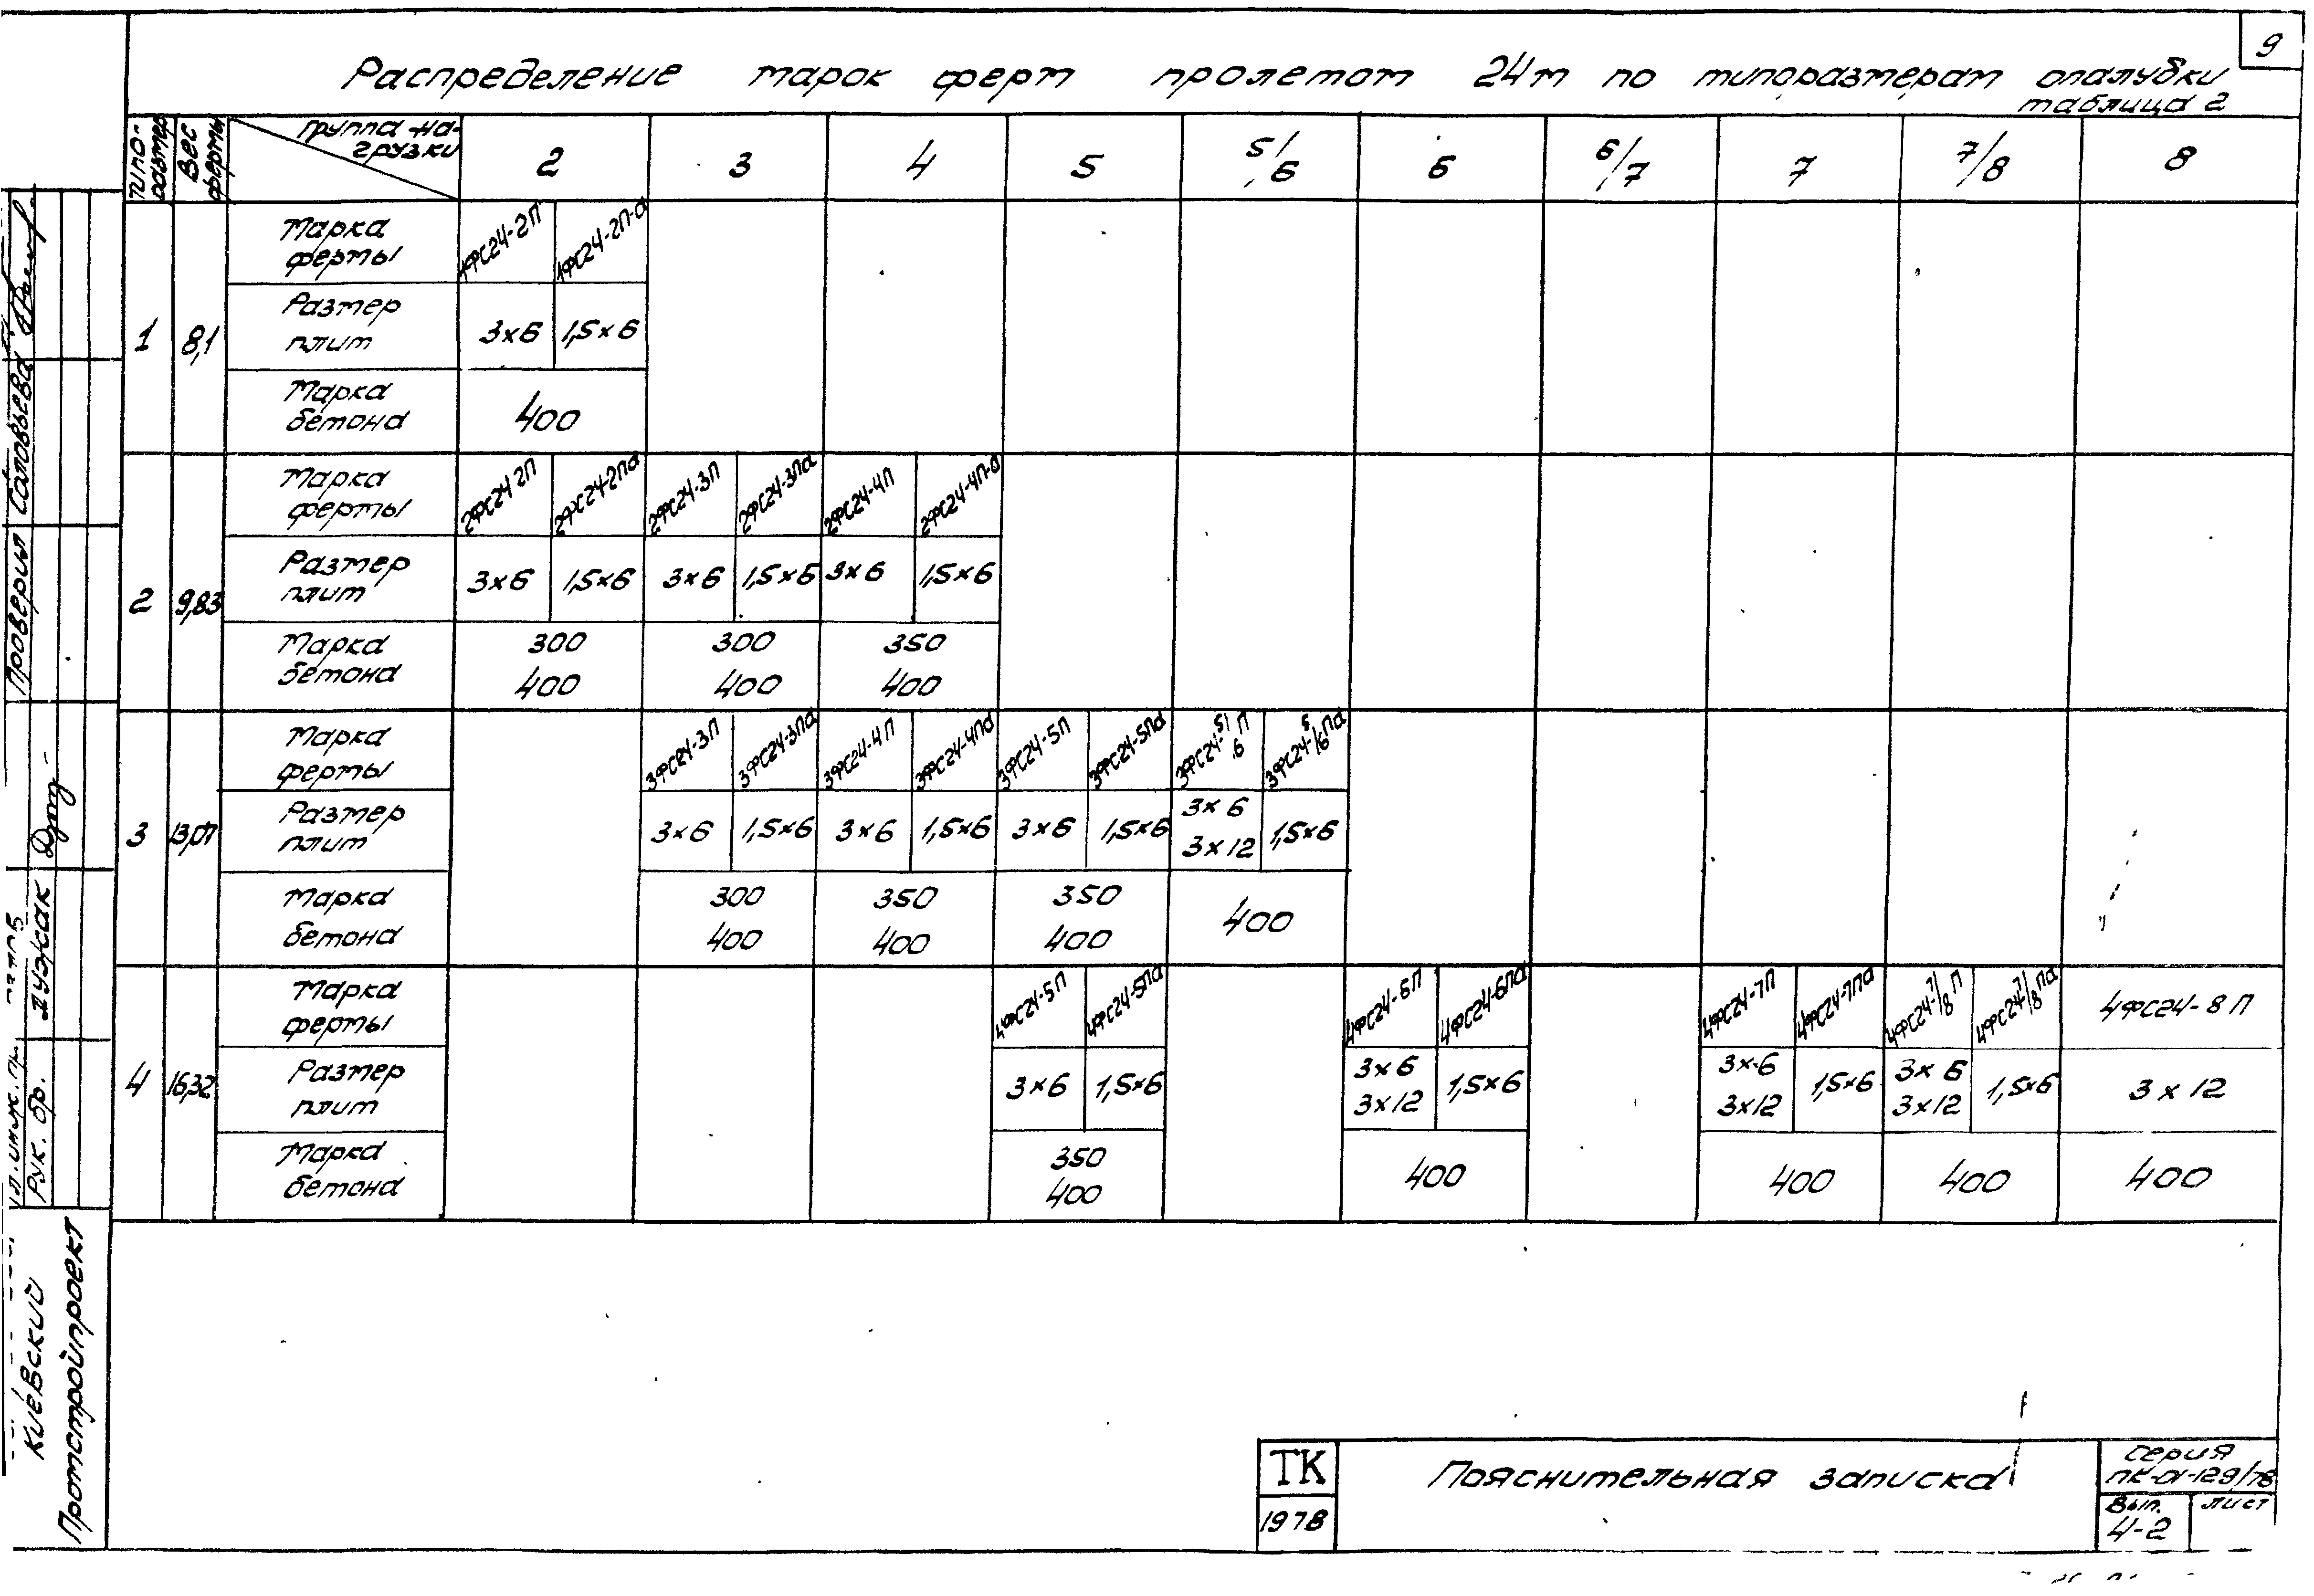 9
Распределение марок ферм пролетом 24м по типоразмерам опалубки
таблица 2
Типо-размер
Вес фермы
Группа на-
грузки
2 3 4 5 5/6 6 6/7 7 7/8 8
1 8,1
Марка
фермы
1ФС24-2П 1ФС24-2П-а
Размер
плит
3х6 1,5х6
Марка
бетона
400
2 9,83
Марка
фермы
2ФС24 2П 2ФС24-2Па 2ФС24-3П 2ФС24-3Па 2ФС24-4П 2ФС24-4П-а
Размер
плит
3х6 1,5х6 3х6 1,5х6 3х6 1,5х6
Марка
бетона
300 300 350
400 400 400
3
Марка
фермы
3ФС24-3П 3ФС24-3Па 3ФС24-4П 3ФС24-4Па 3ФС24-5П 3ФС24-5Па 3ФС24-5/6П 3ФС24-5/6Па
Размер
плит
3х6 1,5х6 3х6 1,5х6 3х6 1,5х6 3х6 1,5х6
3х12
Марка
бетона
300 350 350 400
400 400 400
4 16,32
Марка
фермы
4ФС24-5П 4ФС24-5Па 4ФС24-6П 4ФС24-6Па 4ФС24-7П 4ФС24-7Па 4ФС24-7/8П 4ФС24-7/8Па 4ФС24-8П
Размер
плит
3х6 1,5х6 3х6 1,5х6 3х6 1,5х6 3х6 1,5х6 3х12
3х12 3х12 3х12
Марка
бетона
350 400 400 400 400
400
Проверил Соловьева
Рук. бр. Дужак
Киевский
Промстройпроект
ТК
1978
Пояснительная записка
серия
ПК-01-129/78
Вып.
4-2
лист